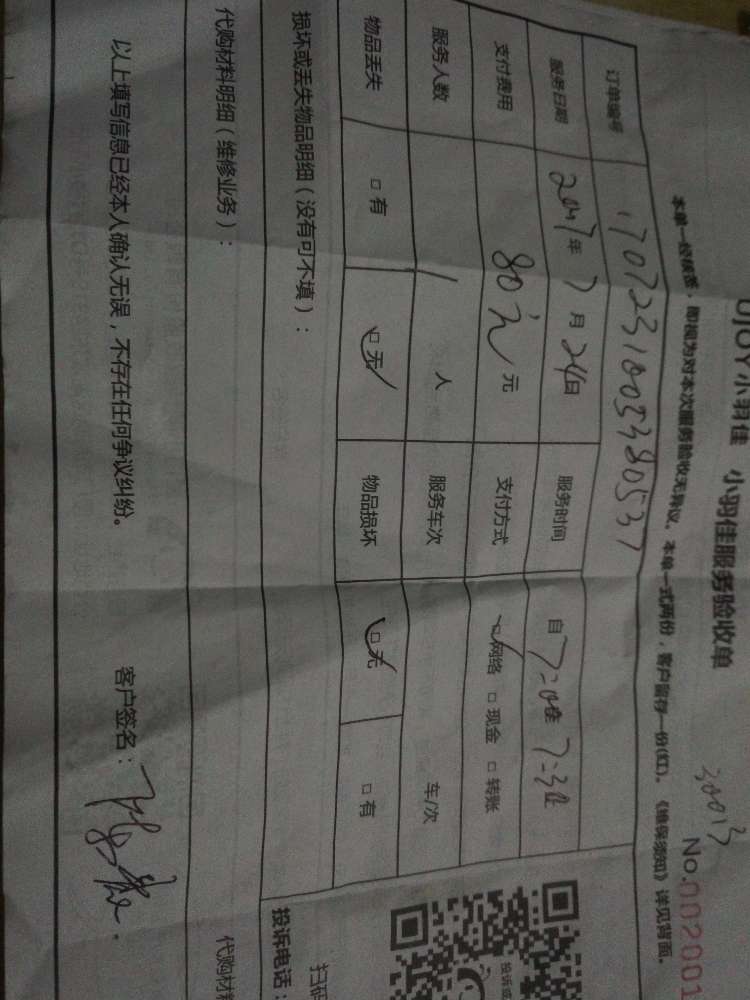 UJOY小羽佳 小羽佳服务验收单
30013
No.002001
本单一经填签，即视为对本次服务验收无异议。本单一式两份，客户留存一份(红)。《维保须知》详见背面。
订单编号 1707231005380537
服务日期 2017年7月24日 服务时间 自7:00至7:30
支付费用 80元 元 支付方式 □网络 □现金 □转账
服务人数 1 人 服务车次 车/次
物品丢失 □有 □无 物品损坏 □无 □有
损坏或丢失物品明细（没有可不填）：
代购材料明细（维修业务）：
代购材料
以上填写信息已经本人确认无误，不存在任何争议纠纷。 客户签名：
投诉或
扫码
投诉电话：